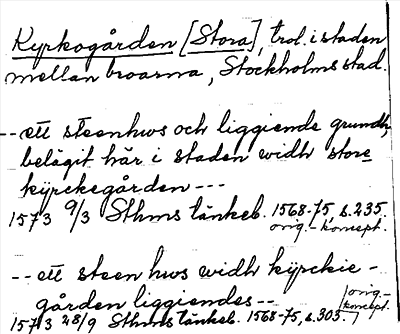 Kyrkogården [Stora], trol. i staden
mellan broarna, Stockholms stad.
--ett steenhws och liggiende grundh,
belägit här i staden widh store
kÿrckegården ---
1573 9/3 Sthms tänkeb. 1568-75, s. 235.
orig.-koncept.
--ett steen hws widh kÿrckie-
gården liggiendes--
1573 28/9 Sthms tänkeb. 1568-75, s. 303.
orig.-
koncept.